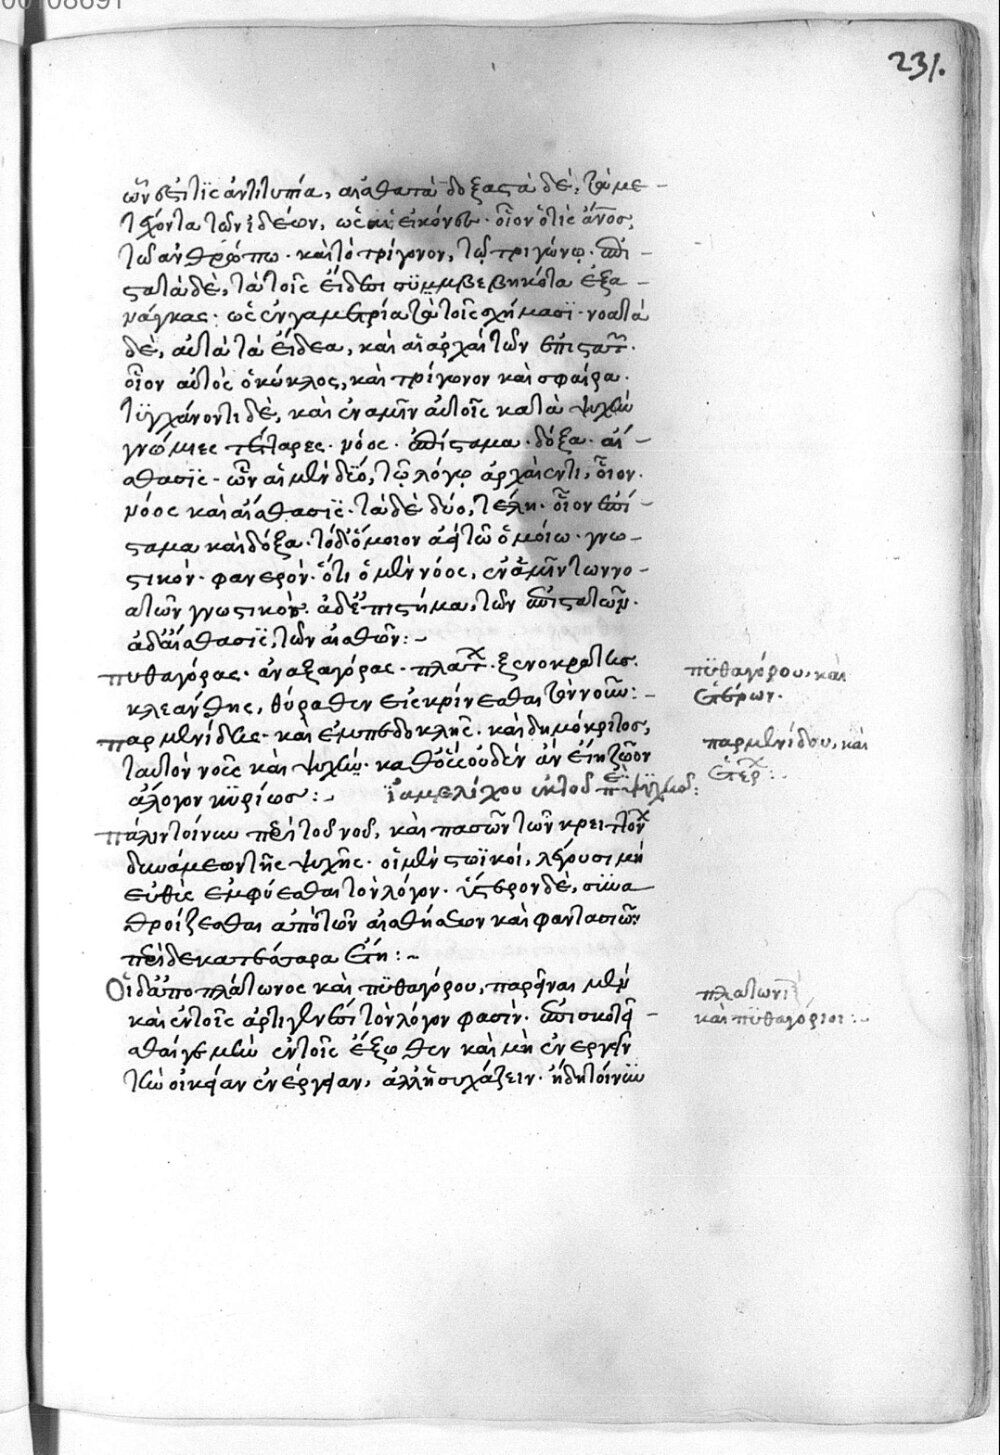 231.
ὧν ἐςίτις ἀντιτυπία, αἰσθατὰ δοξαςὰ δέ, τὰ με
τέχοντα τῶν ἰδέων, ὡς αἱ εἰκόνες. οἷον ὁτὶς ἄνος,
τῶ ἀνθρώπω. καὶ τὸ τρίγονον, τῷ τριγώνῳ. ἐπι
ςατὰ δὲ, τὰ τοῖς εἴδεσι συμμβεβηκότα ἐξα
νάγκας. ὡς ἐν γαμετρία τὰ τοῖς σχήμασι. νοατὰ
δὲ, αὐτὰ τὰ εἴδεα, καὶ αἱ ἀρχαὶ τῶν ἐπιςατῶν.
οἷον αὐτὸς ὁ κύκλος, καὶ τρίγωνον καὶ σφαίρα.
τυγχάνοντι δὲ, καὶ ἐν ἁμῖν αὐτοῖς κατὰ ψυχὰν
γνώμιες τέταρες. νόος. ἐπίςαμα. δόξα. αἴ
σθασις. ὧν αἱ μὲν δύο, τῷ λόγῳ ἀρχαὶ ἐντι, οἷον.
νόος καὶ αἴσθασις. τὰ δὲ δύο, τέλη. οἷον ἐπί
ςαμα καὶ δόξα. τὸ δ' ὅμοιον ἀεὶ τῶ ὁμοίω. γνω
ςικὸν. φανερὸν. ὅτι ὁ μὲν νόος, ἐν ἁμῖν τῶν νο
ατῶν γνωςικὸν. ἁ δ' ἐπιςήμα, τῶν ἐπιςατῶν.
ἁ δ' αἴσθασις, τῶν αἰσθῶν:
πυθαγόρας. ἀναξαγόρας. πλάτ. ξενοκράτης.
κλεάνθης, θύραθεν εἰσκρίνεσθαι τὸν νοῦν:
παρμενίδης. καὶ ἐμπεδοκλῆς. καὶ δημόκριτος,
ταυτὸν νοῦς καὶ ψυχὴν. καθ' οὓς οὐδὲν ἂν εἴη ζῶον
ἄλογον κυρίως: ἰαμβλίχου ἐκ τοῦ περὶ ψυχῆς:
πάλιν τοίνυν περὶ τοῦ νοῦ, καὶ πασῶν τῶν κρειττόν
δυνάμεων τῆς ψυχῆς. οἱ μὲν ςωϊκοὶ, λέγουσι μὴ
εὐθὺς ἐμφύεσθαι τὸν λόγον. ὕςερον δὲ, συνα
θροίζεσθαι ἀπὸ τῶν αἰσθήσεων καὶ φαντασιῶν
περὶ δεκατέσσαρα ἔτη:
Οἱ δ' ἀπο πλάτωνος καὶ πυθαγόρου, παρεῖναι μὲν
καὶ ἐν τοῖς ἀρτιγενέσι τὸν λόγον φασὶν. ἐπισκοτεῖ
σθαί γε μὴν ἐν τοῖς ἔξωθεν καὶ μὴ ἐνεργεῖν
τὴν οἰκείαν ἐνέργειαν, ἀλλ' ἡσυχάζειν. ἤδη τοίνυν
πυθαγόρου, καὶ
ἑτέρων.
παρμενίδου, καὶ
ἑτέρ:
πλατωνι
καὶ πυθαγόριοι: